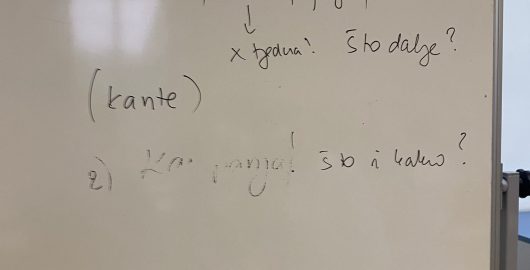 x tjedna! Što dalje?
(kante)
2) Kampanja! što i kako?